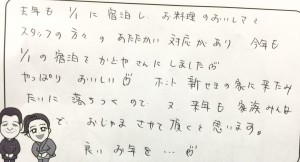 去年も 1/1 に宿泊し、お料理のおいしさと
スタッフの方々のあたたかい対応があり 今年も
1/1 の宿泊でかどやさんにしました
やっぱりおいしい ホント親せきの家に来たみ
たいに落ちつくので 又来年も家族みんな
で、おじゃまさせて頂くと思います。
良いお年を…